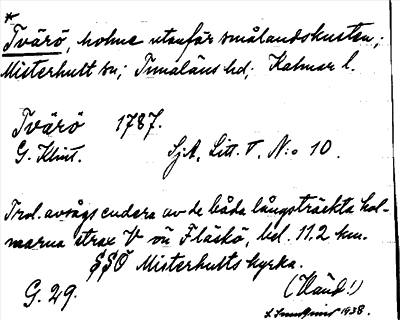 *
Tvärö, holme utanför smålandskusten;
Misterhult sn; Tunaläns hd; Kalmar l.
Tvärö 1787.
G. Klint. SjA, Litt. T, N:o 10.
Trol. avsågs endera av de båda långsträckta hol-
marna strax V om Fläskö, bel. 11.2 km.
SSÖ Misterhults kyrka.
G. 29. (Händ!)
1938.